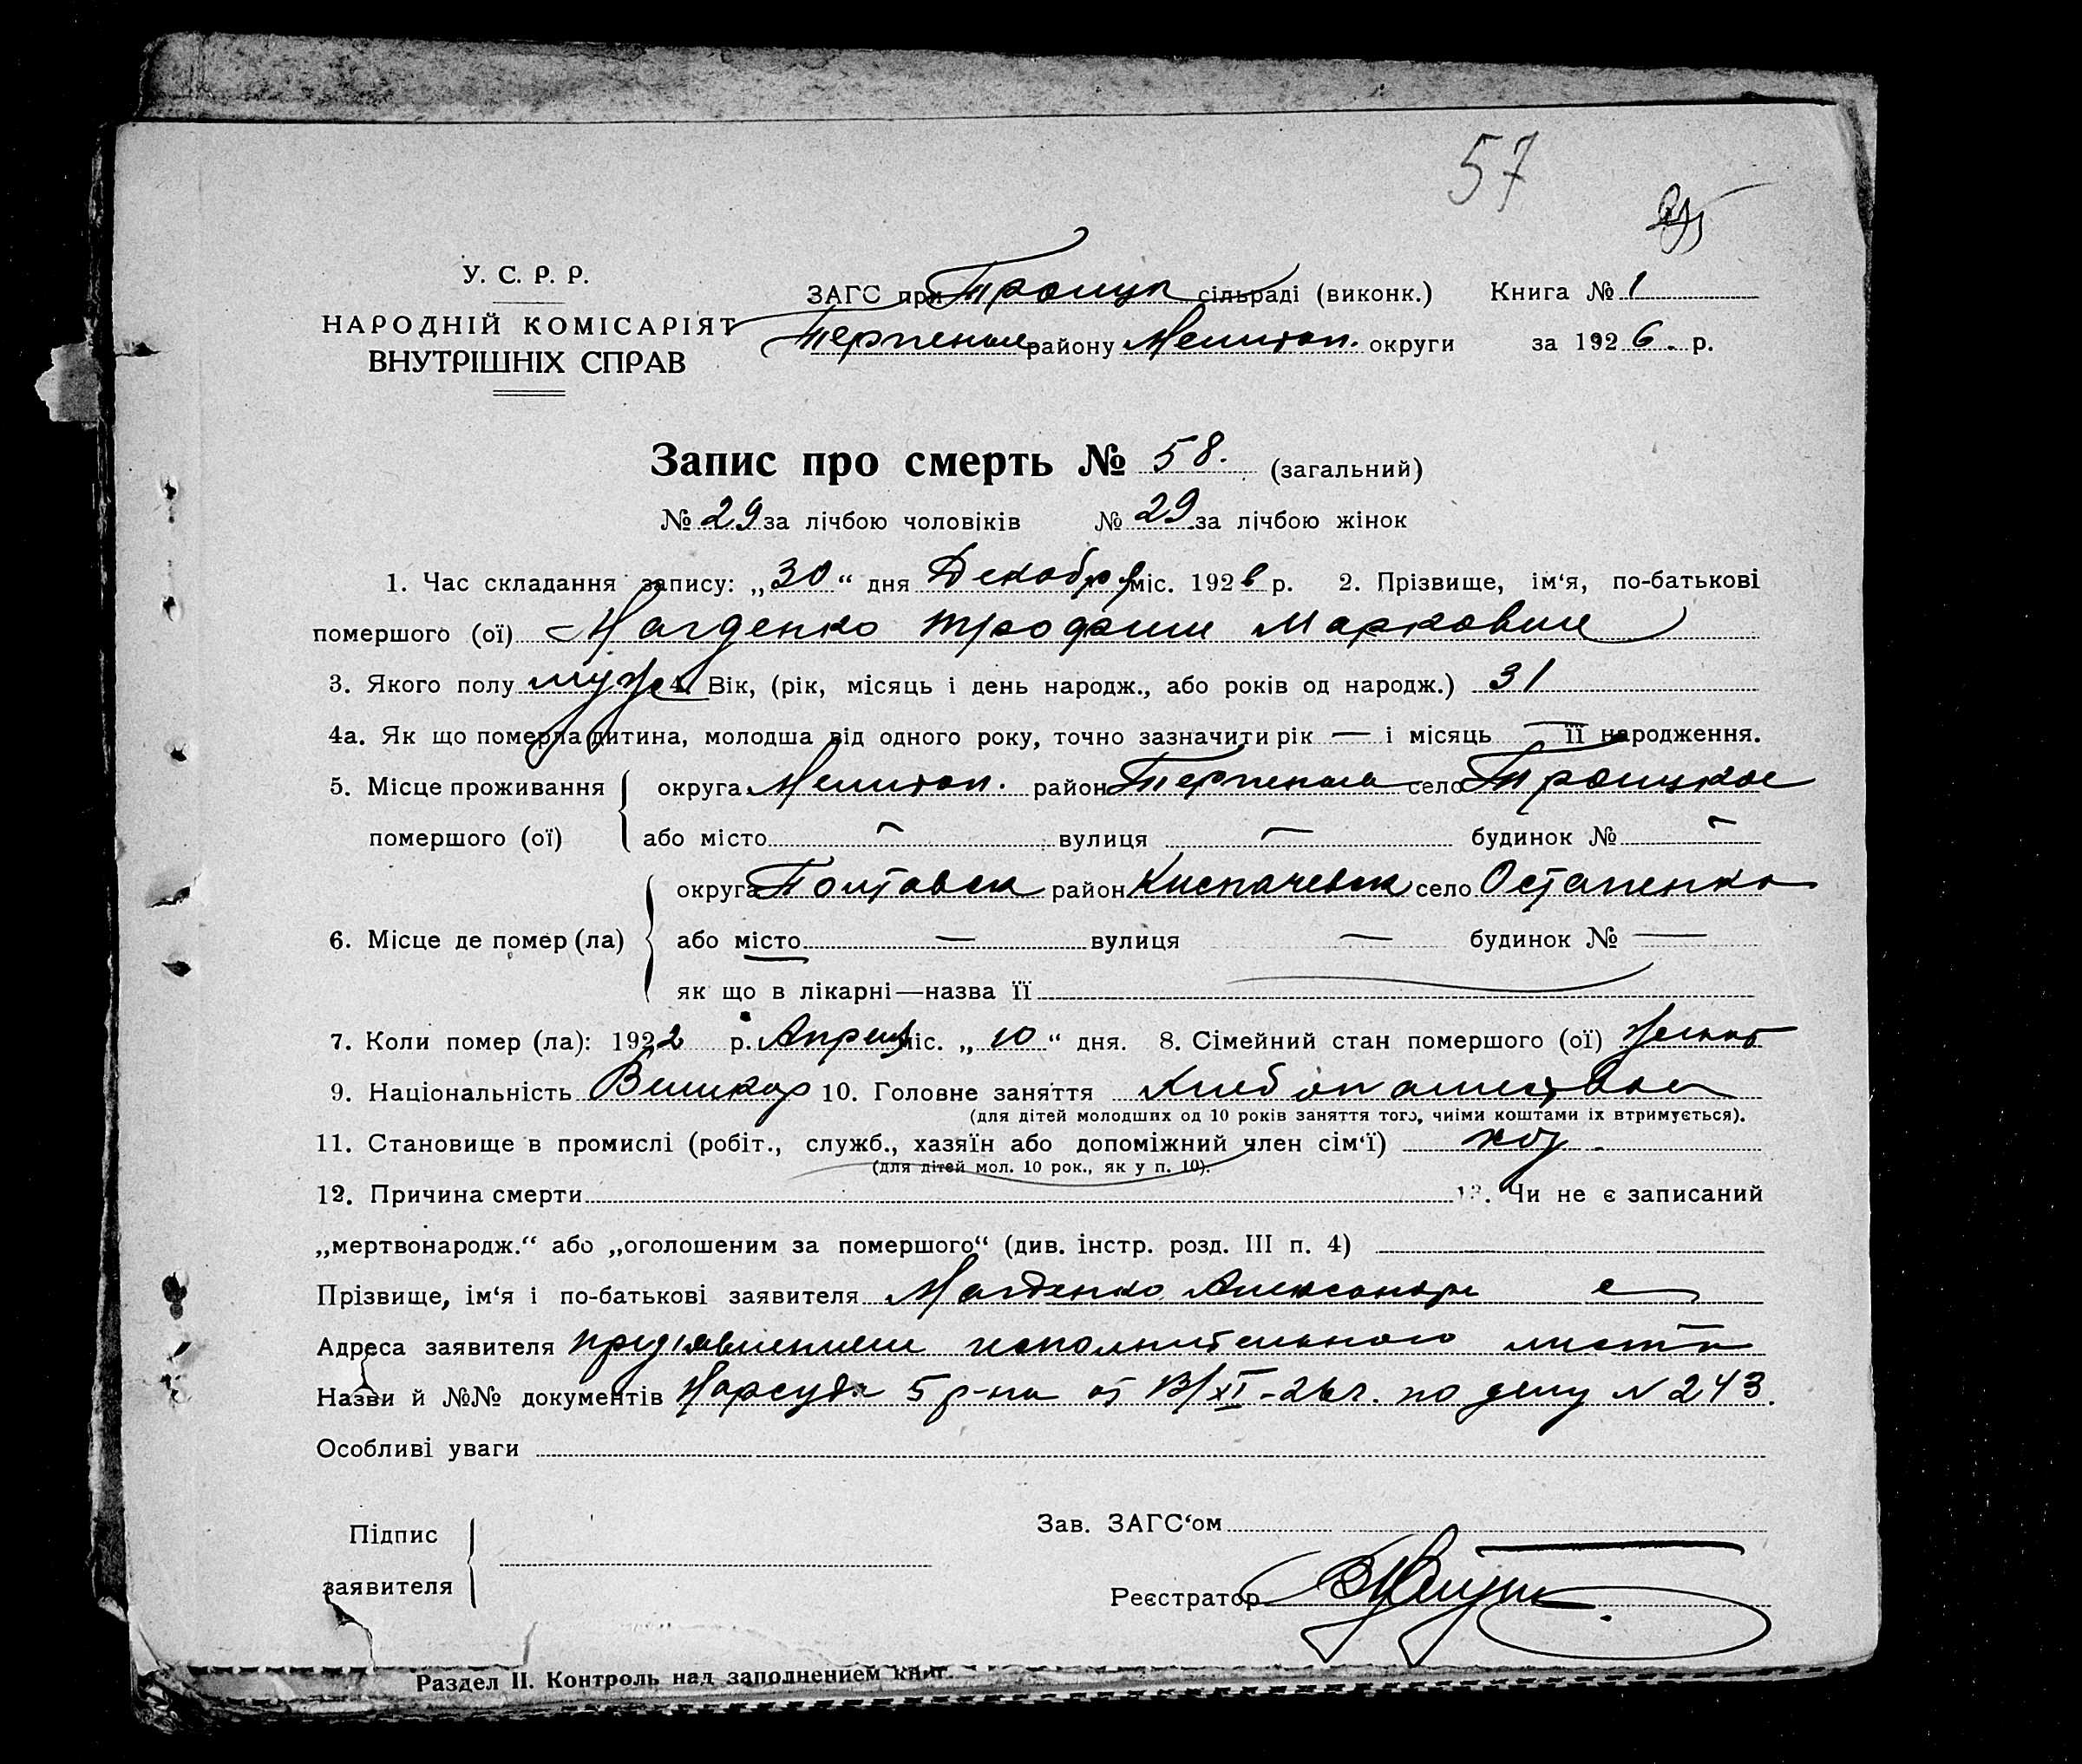 57
У. С. Р. Р.
НАРОДНІЙ КОМІСАРІЯТ
ВНУТРІШНІХ СПРАВ
ЗАГС при Троицк сільраді (виконк.) Книга № 1
району Мелитоп. округи за 1926. р.
Запис про смерть № 58. (загальний)
№ 29 за лічбою чоловіків № 29 за лічбою жінок
1. Час складання запису: „30“ дня Декабря міс. 1926 р. 2. Прізвище, ім‘я, по-батькові
помершого (ої) Марковии
3. Якого полу муж 4. Вік, (рік, місяць і день народж., або років од народж.) 31
4а. Як що померла дитина, молодша від одного року, точно зазначити рік — і місяць — її народження.
5. Місце проживання округа Мелитоп. район село Троицкое
помершого (ої) або місто — вулиця — будинок № —
округа Полтавск район село Остапенко
6. Місце де помер (ла) або місто — вулиця — будинок № —
як що в лікарні—назва її
7. Коли помер (ла): 1922 р. Апреля міс. „10“ дня. 8. Сімейний стан помершого (ої) женат
9. Національність Великор 10. Головне заняття
(для дітей молодших од 10 років заняття того, чиїми коштами їх втримується).
11. Становище в промислі (робіт., служб., хазяїн або допоміжний член сім‘ї) хоз.
(для дітей мол. 10 рок., як у п. 10).
12. Причина смерти 13. Чи не є записаний
„мертвонародж.“ або „оголошеним за помершого“ (див. інстр. розд. III п. 4)
Прізвище, ім‘я і по-батькові заявителя
Адреса заявителя исполнительного листа
Назви й №№ документів Нарсуда 5 р-на от 13/XI-26 г. по делу N 243.
Особливі уваги
Підпис
заявителя
Зав. ЗАГС‘ом
Реєстратор
Раздел II. Контроль над заполнением книг.